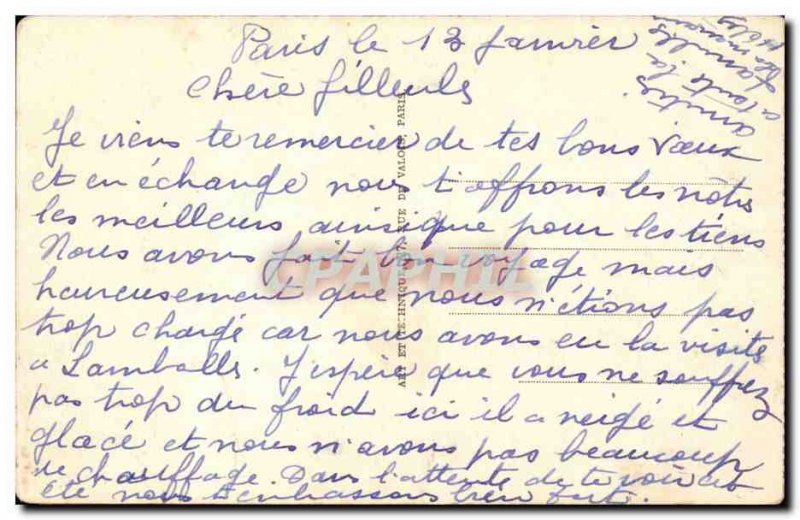 Paris le 13 Janvier
Chère filleule
Je viens te remercier de tes bons vœux
et en échange nous t'offrons les nôtres
les meilleurs ainsique pour les tiens
Nous avons fait bon voyage mais
heureusement que nous n'étions pas
trop chargé car nous avons eu la visite
a Lamballe. J'espère que vous ne souffrez
pas trop du froid ici il a neigé et
glacé et nous n'avons pas beaucoup
de chauffage. Dans l'attente de te voir cet
été nous t'embrassons bien fort.
amitiés
a toute la
famille
ART ET TECHNIQUE RUE DE VALOIS, PARIS
CPAPHIL